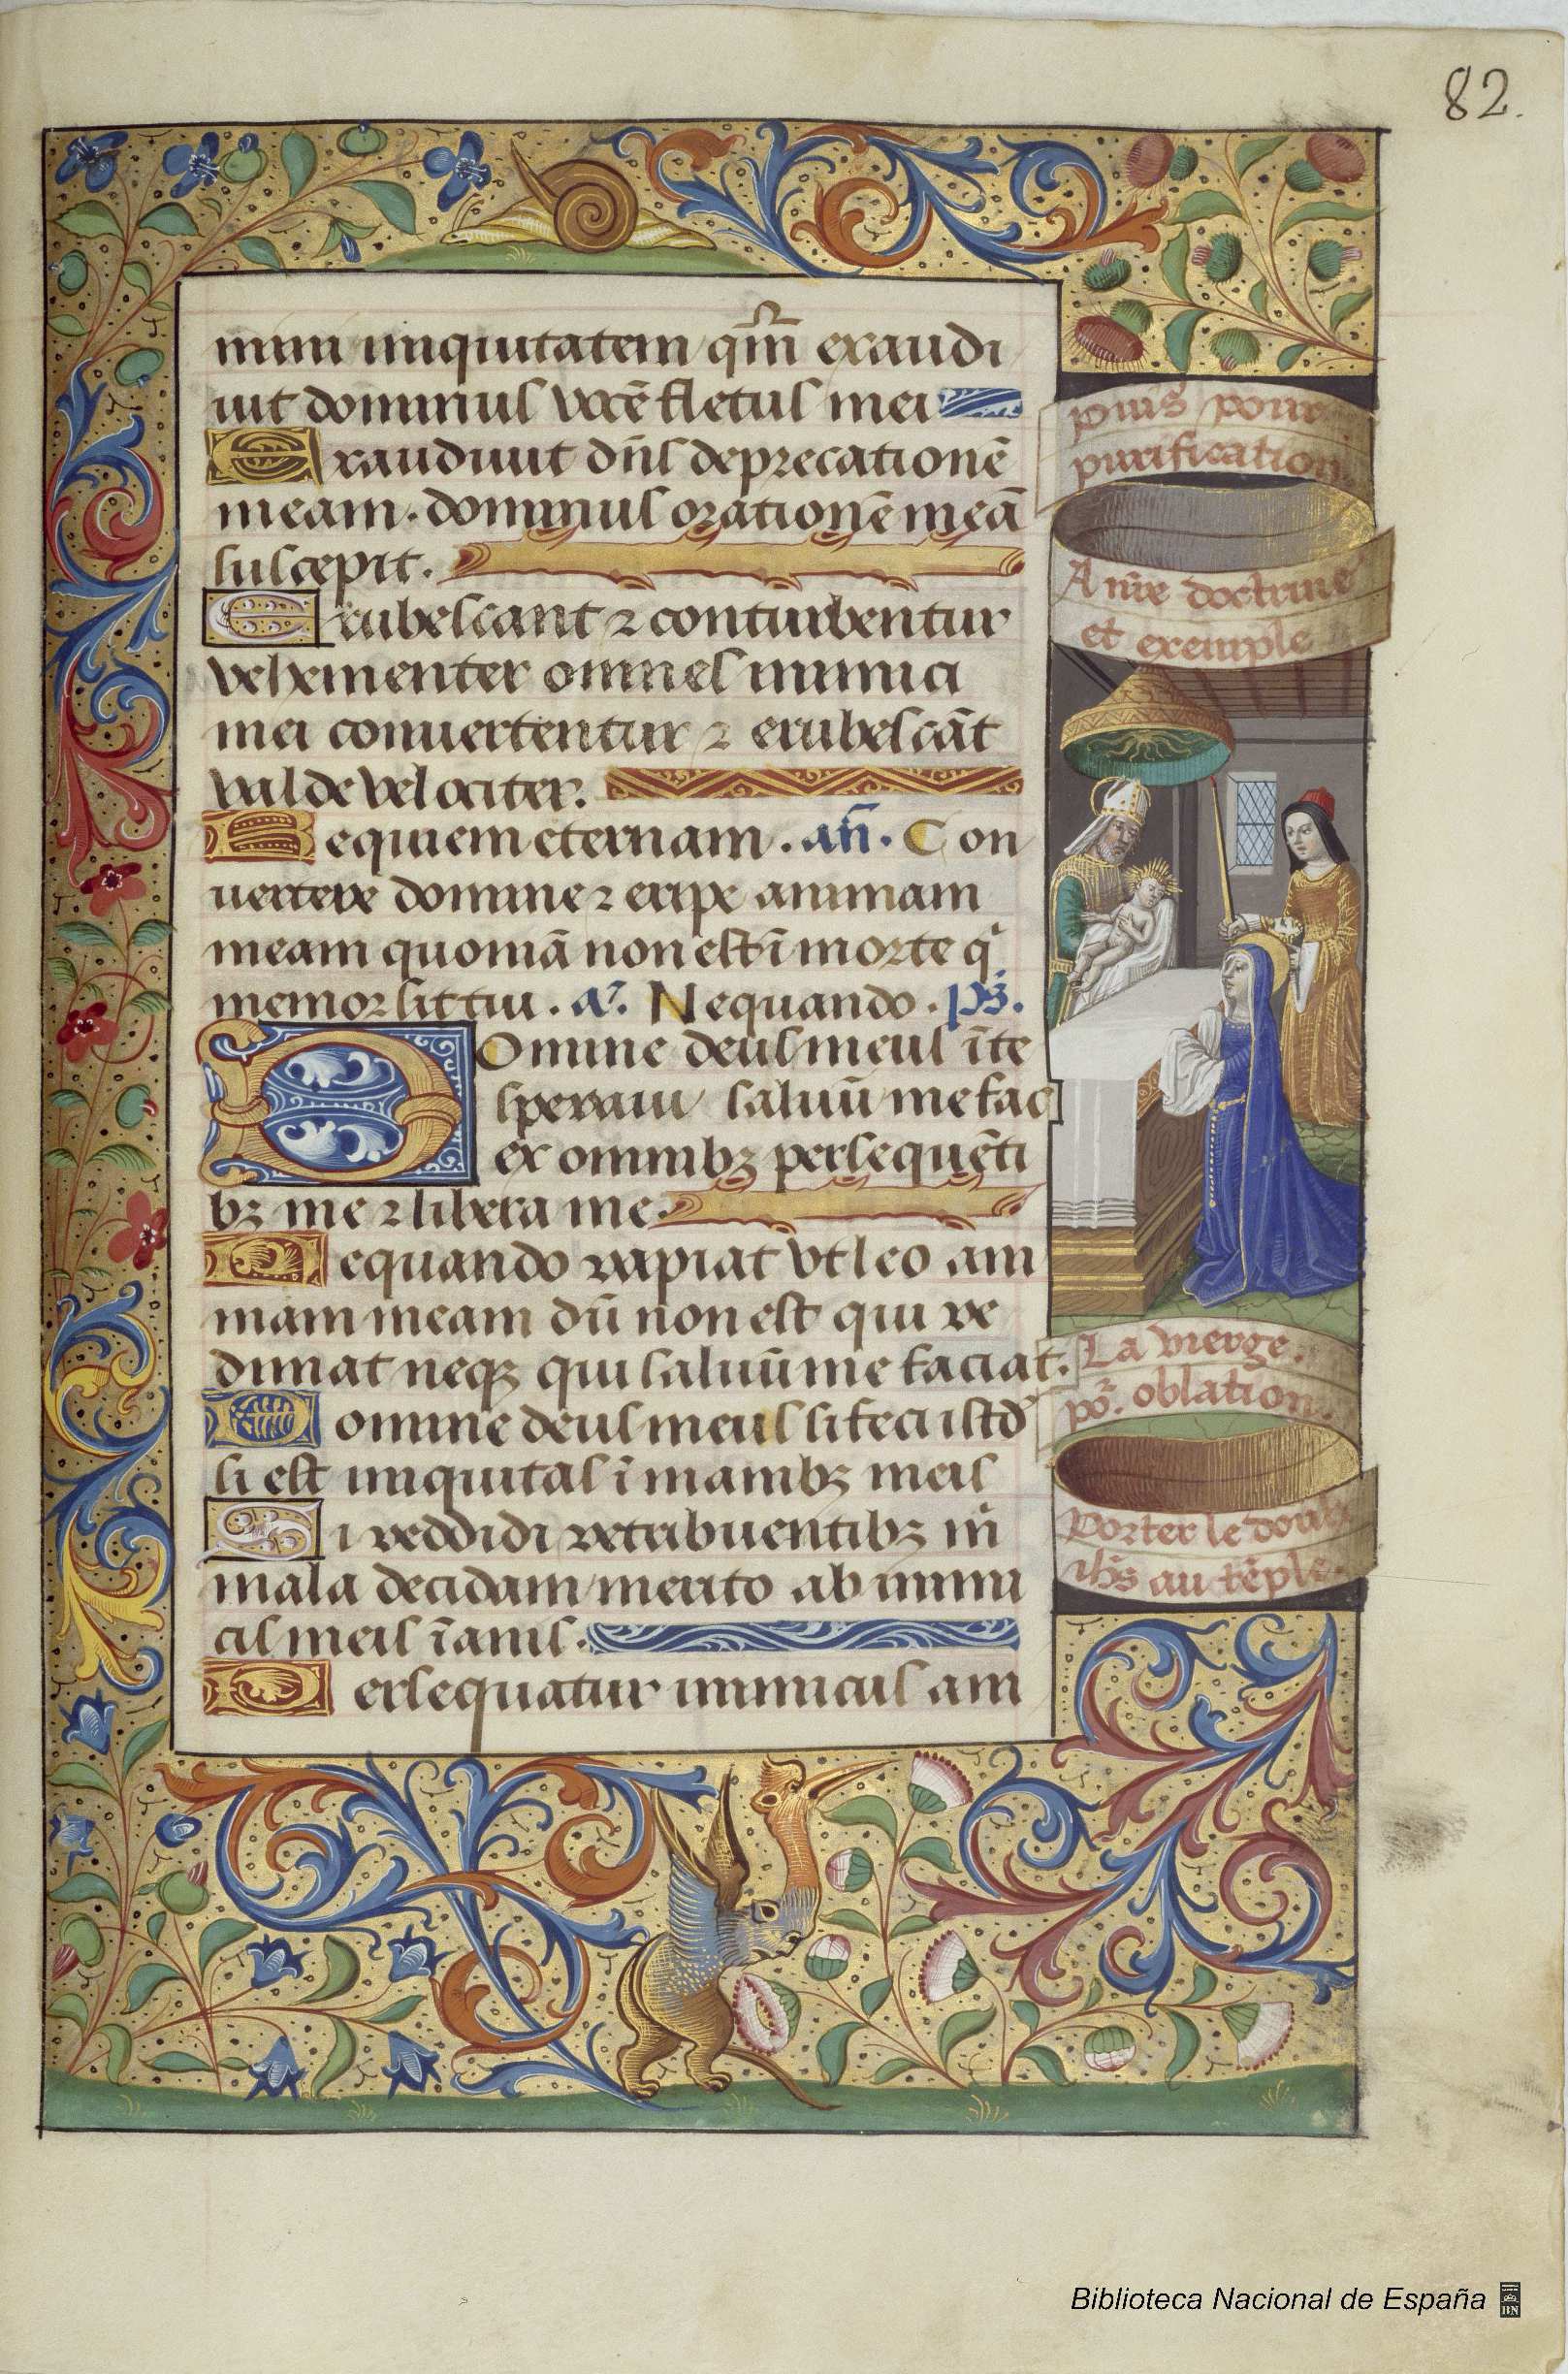 82.
mini iniquitatem qm̄ exaudi
uit dominus vocē fletus mei
Exaudiuit dn̄s deprecationē
meam. dominus orationē meā
suscepit.
Erubescant ⁊ conturbentur
vehementer omnes inimici
mei conuertentur ⁊ erubescāt
valde velociter.
Requiem eternam. an̄. Con
uertere domine ⁊ eripe animam
meam quoniā non est ī morte q
memor sit tui. a. Nequando. ps.
Domine deus meus īte
speraui saluū me fac
ex omnibꝫ persequēti
bꝫ me ⁊ libera me.
Nequando rapiat vt leo ani
mam meam dū non est qui re
dimat neqꝫ qui saluū me faciat.
Domine deus meus si feci istd
si est iniquitas ī manibꝫ meis
Si reddidi retribuentibꝫ m
mala decidam merito ab inimi
cis meis īanis.
Persequatur inimicus ani
puis pour
purification
A nr̄e doctrine
et exemple
La vierge.
po. oblation.
Porter le doulx
ihs au tēple.
Biblioteca Nacional de España
BN